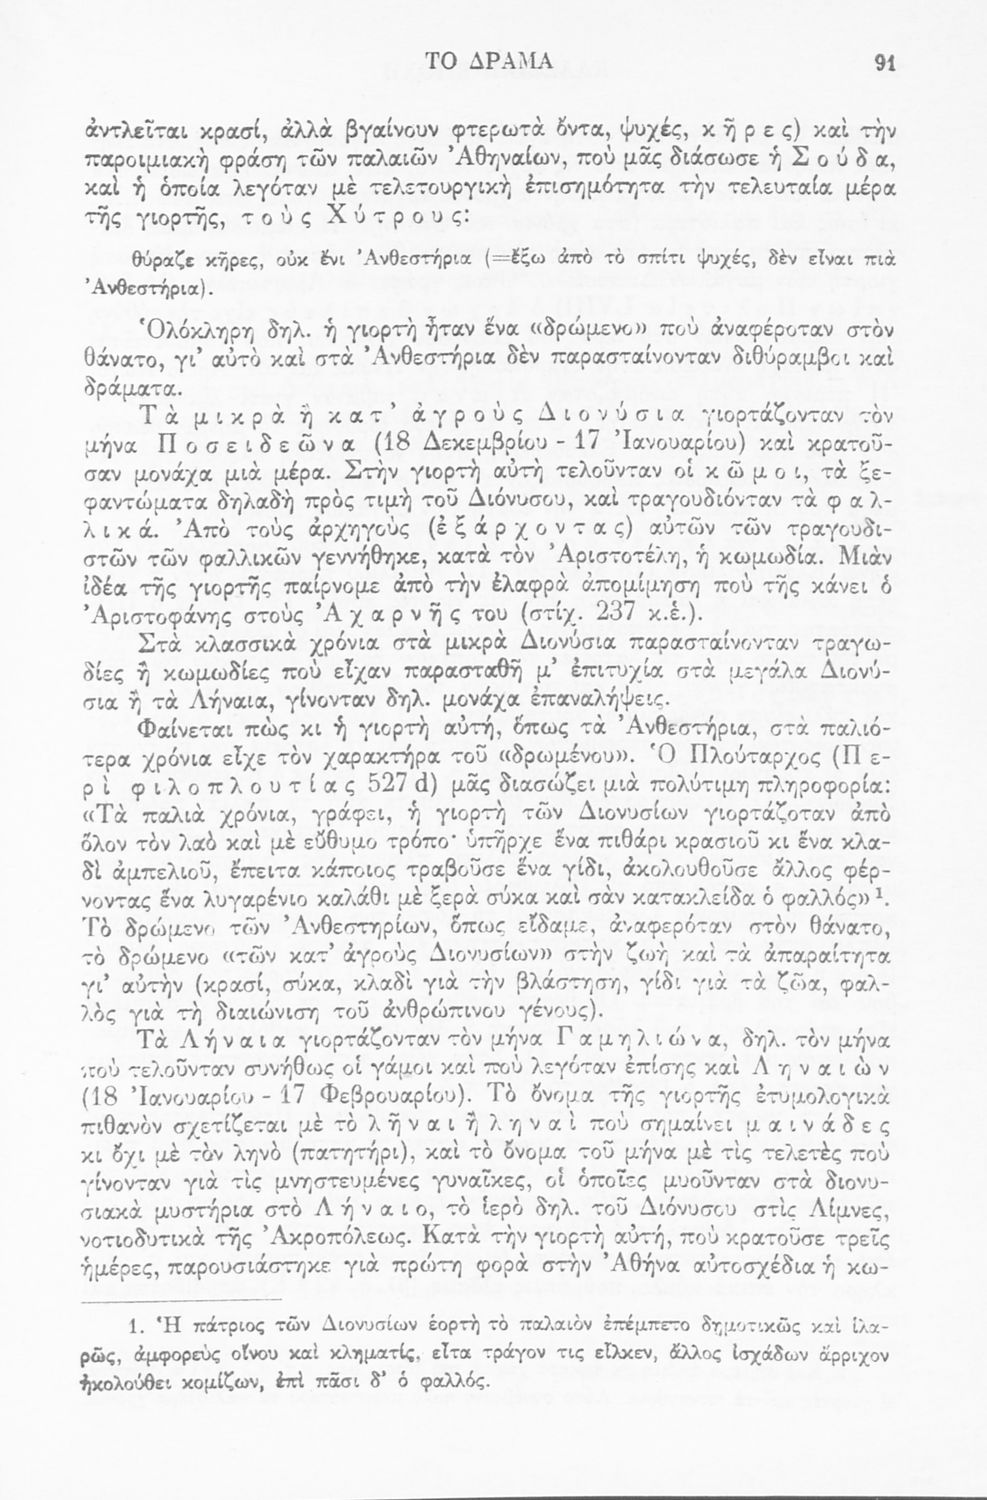 ΤΟ ΔΡΑΜΑ 91
ἀντλεῖται κρασί, ἀλλὰ βγαίνουν φτερωτὰ ὄντα, ψυχές, κ ῆ ρ ε ς) καὶ τὴν
παροιμιακὴ φράση τῶν παλαιῶν Ἀθηναίων, ποὺ μᾶς διάσωσε ἡ Σ ο ύ δ α,
καὶ ἡ ὁποία λεγόταν μὲ τελετουργικὴ ἐπισημότητα τὴν τελευταία μέρα
τῆς γιορτῆς, τ ο ὺ ς Χ ύ τ ρ ο υ ς:
θύραζε κῆρες, οὐκ ἔνι Ἀνθεστήρια (=ἔξω ἀπὸ τὸ σπίτι ψυχές, δὲν εἶναι πιὰ
Ἀνθεστήρια).
Ὁλόκληρη δηλ. ἡ γιορτὴ ἦταν ἕνα «δρώμενο» ποὺ ἀναφέροταν στὸν
θάνατο, γι' αὐτὸ καὶ στὰ Ἀνθεστήρια δὲν παρασταίνονταν διθύραμβοι καὶ
δράματα.
Τ ὰ μ ι κ ρ ὰ ἢ κ α τ' ἀ γ ρ ο ὺ ς Δ ι ο ν ύ σ ι α γιορτάζονταν τὸν
μήνα Π ο σ ε ι δ ε ῶ ν α (18 Δεκεμβρίου - 17 Ἰανουαρίου) καὶ κρατοῦ-
σαν μονάχα μιὰ μέρα. Στὴν γιορτὴ αὐτὴ τελοῦνταν οἱ κ ῶ μ ο ι, τὰ ξε-
φαντώματα δηλαδὴ πρὸς τιμὴ τοῦ Διόνυσου, καὶ τραγουδιόνταν τὰ φ α λ-
λ ι κ ά. Ἀπὸ τοὺς ἀρχηγοὺς (ἐ ξ ά ρ χ ο ν τ α ς) αὐτῶν τῶν τραγουδι-
στῶν τῶν φαλλικῶν γεννήθηκε, κατὰ τὸν Ἀριστοτέλη, ἡ κωμωδία. Μιὰν
ἰδέα τῆς γιορτῆς παίρνομε ἀπὸ τὴν ἐλαφρὰ ἀπομίμηση ποὺ τῆς κάνει ὁ
Ἀριστοφάνης στοὺς Ἀ χ α ρ ν ῆ ς του (στίχ. 237 κ.ἑ.).
Στὰ κλασσικὰ χρόνια στὰ μικρὰ Διονύσια παρασταίνονταν τραγω-
δίες ἢ κωμωδίες ποὺ εἶχαν παρασταθῆ μ' ἐπιτυχία στὰ μεγάλα Διονύ-
σια ἢ τὰ Λήναια, γίνονταν δηλ. μονάχα ἐπαναλήψεις.
Φαίνεται πὼς κι ἡ γιορτὴ αὐτή, ὅπως τὰ Ἀνθεστήρια, στὰ παλιό-
τερα χρόνια εἶχε τὸν χαρακτήρα τοῦ «δρωμένου». Ὁ Πλούταρχος (Π ε-
ρ ὶ φ ι λ ο π λ ο υ τ ί α ς 527 d) μᾶς διασώζει μιὰ πολύτιμη πληροφορία:
«Τὰ παλιὰ χρόνια, γράφει, ἡ γιορτὴ τῶν Διονυσίων γιορτάζοταν ἀπὸ
ὅλον τὸν λαὸ καὶ μὲ εὔθυμο τρόπο· ὑπῆρχε ἕνα πιθάρι κρασιοῦ κι ἕνα κλα-
δὶ ἀμπελιοῦ, ἔπειτα κάποιος τραβοῦσε ἕνα γίδι, ἀκολουθοῦσε ἄλλος φέρ-
νοντας ἕνα λυγαρένιο καλάθι μὲ ξερὰ σύκα καὶ σὰν κατακλείδα ὁ φαλλός» ¹.
Τὸ δρώμενο τῶν Ἀνθεστηρίων, ὅπως εἴδαμε, ἀναφερόταν στὸν θάνατο,
τὸ δρώμενο «τῶν κατ' ἀγροὺς Διονυσίων» στὴν ζωὴ καὶ τὰ ἀπαραίτητα
γι' αὐτὴν (κρασί, σύκα, κλαδὶ γιὰ τὴν βλάστηση, γίδι γιὰ τὰ ζῶα, φαλ-
λὸς γιὰ τὴ διαιώνιση τοῦ ἀνθρώπινου γένους).
Τὰ Λ ή ν α ι α γιορτάζονταν τὸν μήνα Γ α μ η λ ι ώ ν α, δηλ. τὸν μήνα
ποὺ τελοῦνταν συνήθως οἱ γάμοι καὶ ποὺ λεγόταν ἐπίσης καὶ Λ η ν α ι ὼ ν
(18 Ἰανουαρίου - 17 Φεβρουαρίου). Τὸ ὄνομα τῆς γιορτῆς ἐτυμολογικὰ
πιθανὸν σχετίζεται μὲ τὸ λ ῆ ν α ι ἢ λ η ν α ὶ ποὺ σημαίνει μ α ι ν ά δ ε ς
κι ὄχι μὲ τὸν ληνὸ (πατητήρι), καὶ τὸ ὄνομα τοῦ μήνα μὲ τὶς τελετὲς ποὺ
γίνονταν γιὰ τὶς μνηστευμένες γυναῖκες, οἱ ὁποῖες μυοῦνταν στὰ διονυ-
σιακὰ μυστήρια στὸ Λ ή ν α ι ο, τὸ ἱερὸ δηλ. τοῦ Διόνυσου στὶς Λίμνες,
νοτιοδυτικὰ τῆς Ἀκροπόλεως. Κατὰ τὴν γιορτὴ αὐτή, ποὺ κρατοῦσε τρεῖς
ἡμέρες, παρουσιάστηκε γιὰ πρώτη φορὰ στὴν Ἀθήνα αὐτοσχέδια ἡ κω-
1. Ἡ πάτριος τῶν Διονυσίων ἑορτὴ τὸ παλαιὸν ἐπέμπετο δημοτικῶς καὶ ἱλα-
ρῶς, ἀμφορεὺς οἴνου καὶ κληματίς, εἶτα τράγον τις εἷλκεν, ἄλλος ἰσχάδων ἄρριχον
ἠκολούθει κομίζων, ἐπὶ πᾶσι δ' ὁ φαλλός.